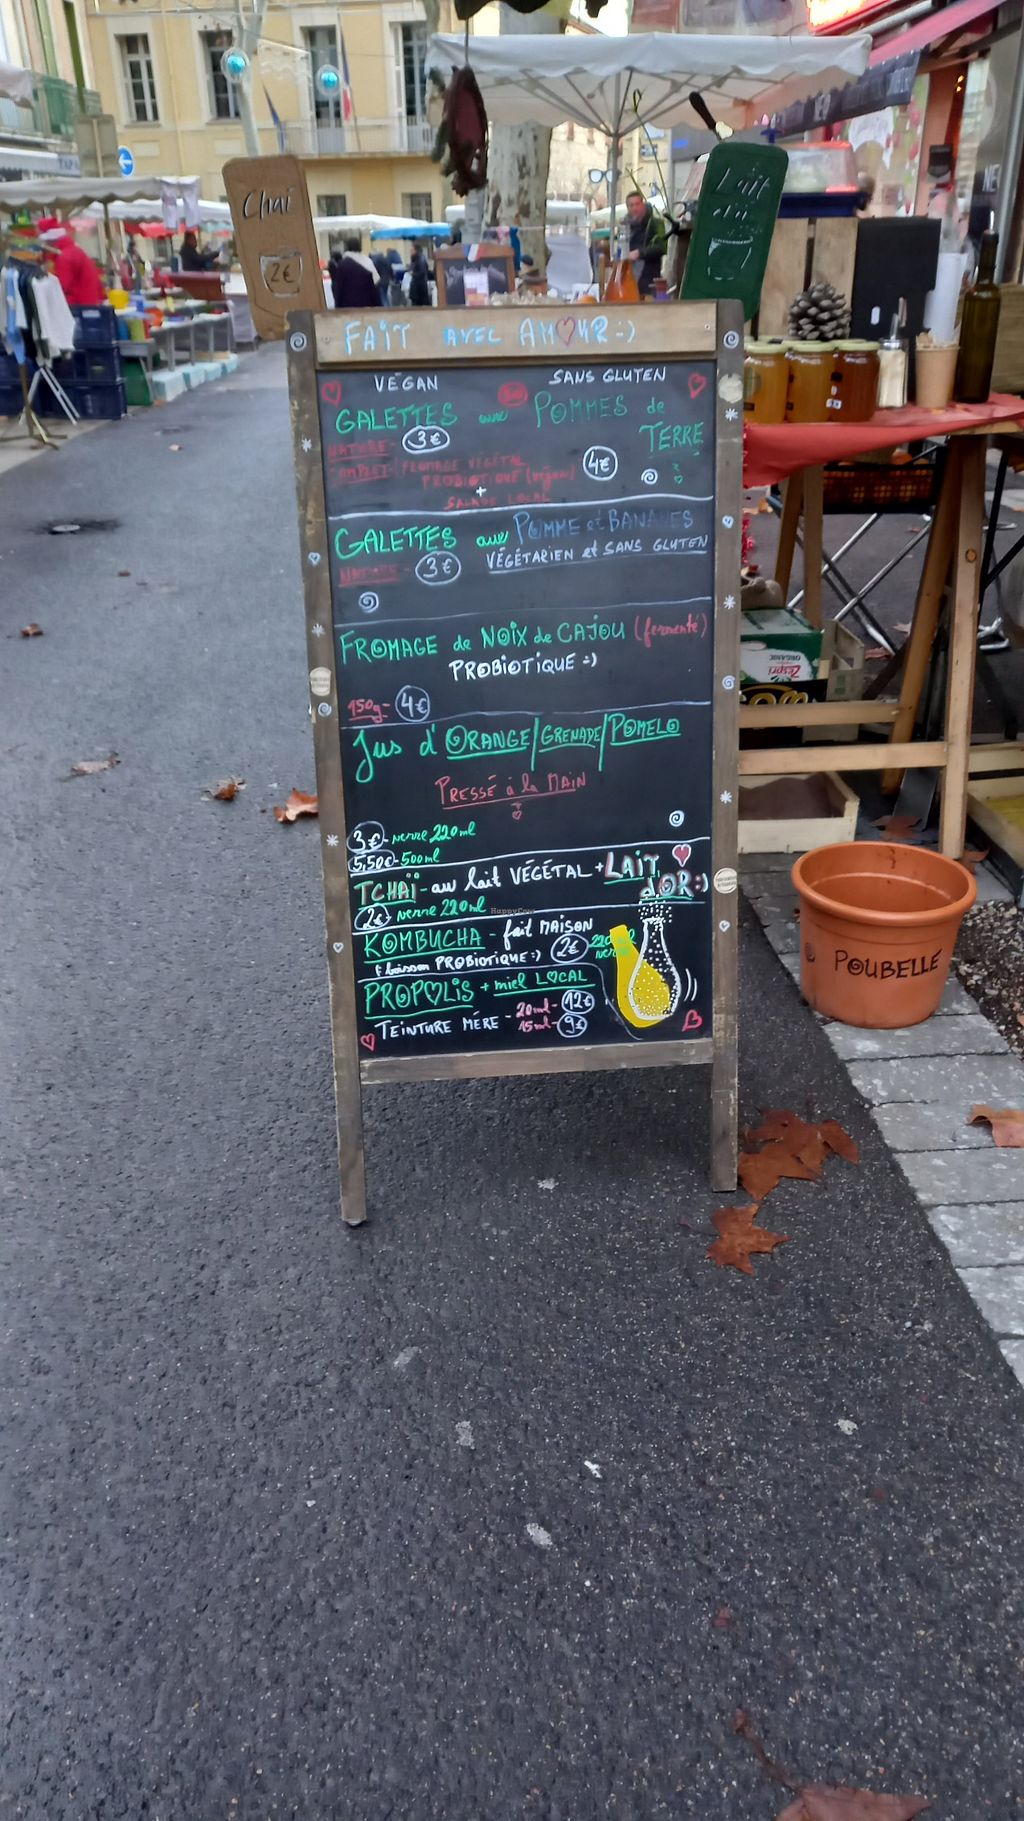 Chai
2€
Lait
d'or
FAIT AVEC AMOUR :)
VÉGAN
SANS GLUTEN
GALETTES aux POMMES de
TERRE
NATURE - 3€
COMPLET - (FROMAGE VÉGÉTAL
PROBIOTIQUE (végan)
4€
+
SALADE LOCAL
GALETTES aux POMME et BANANES
VÉGÉTARIEN et SANS GLUTEN
NATURE - 3€
FROMAGE de NOIX de CAJOU (fermenté)
PROBIOTIQUE :)
150g - 4€
Jus d'ORANGE/GRENADE/POMELO
PRESSÉ à la MAIN
3€ - verre 220ml
5,50€ - 500ml
TCHAÏ - au lait VÉGÉTAL + LAIT
d'OR :)
2€ - verre 220ml
HappyCow
KOMBUCHA - fait MAISON
(boisson PROBIOTIQUE :) 2€ 220ml
verre
PROPOLIS + miel LOCAL
TEINTURE MÉRE - 20ml - 12€
15ml - 9€
POUBELLE
ORGANIC
Zespri